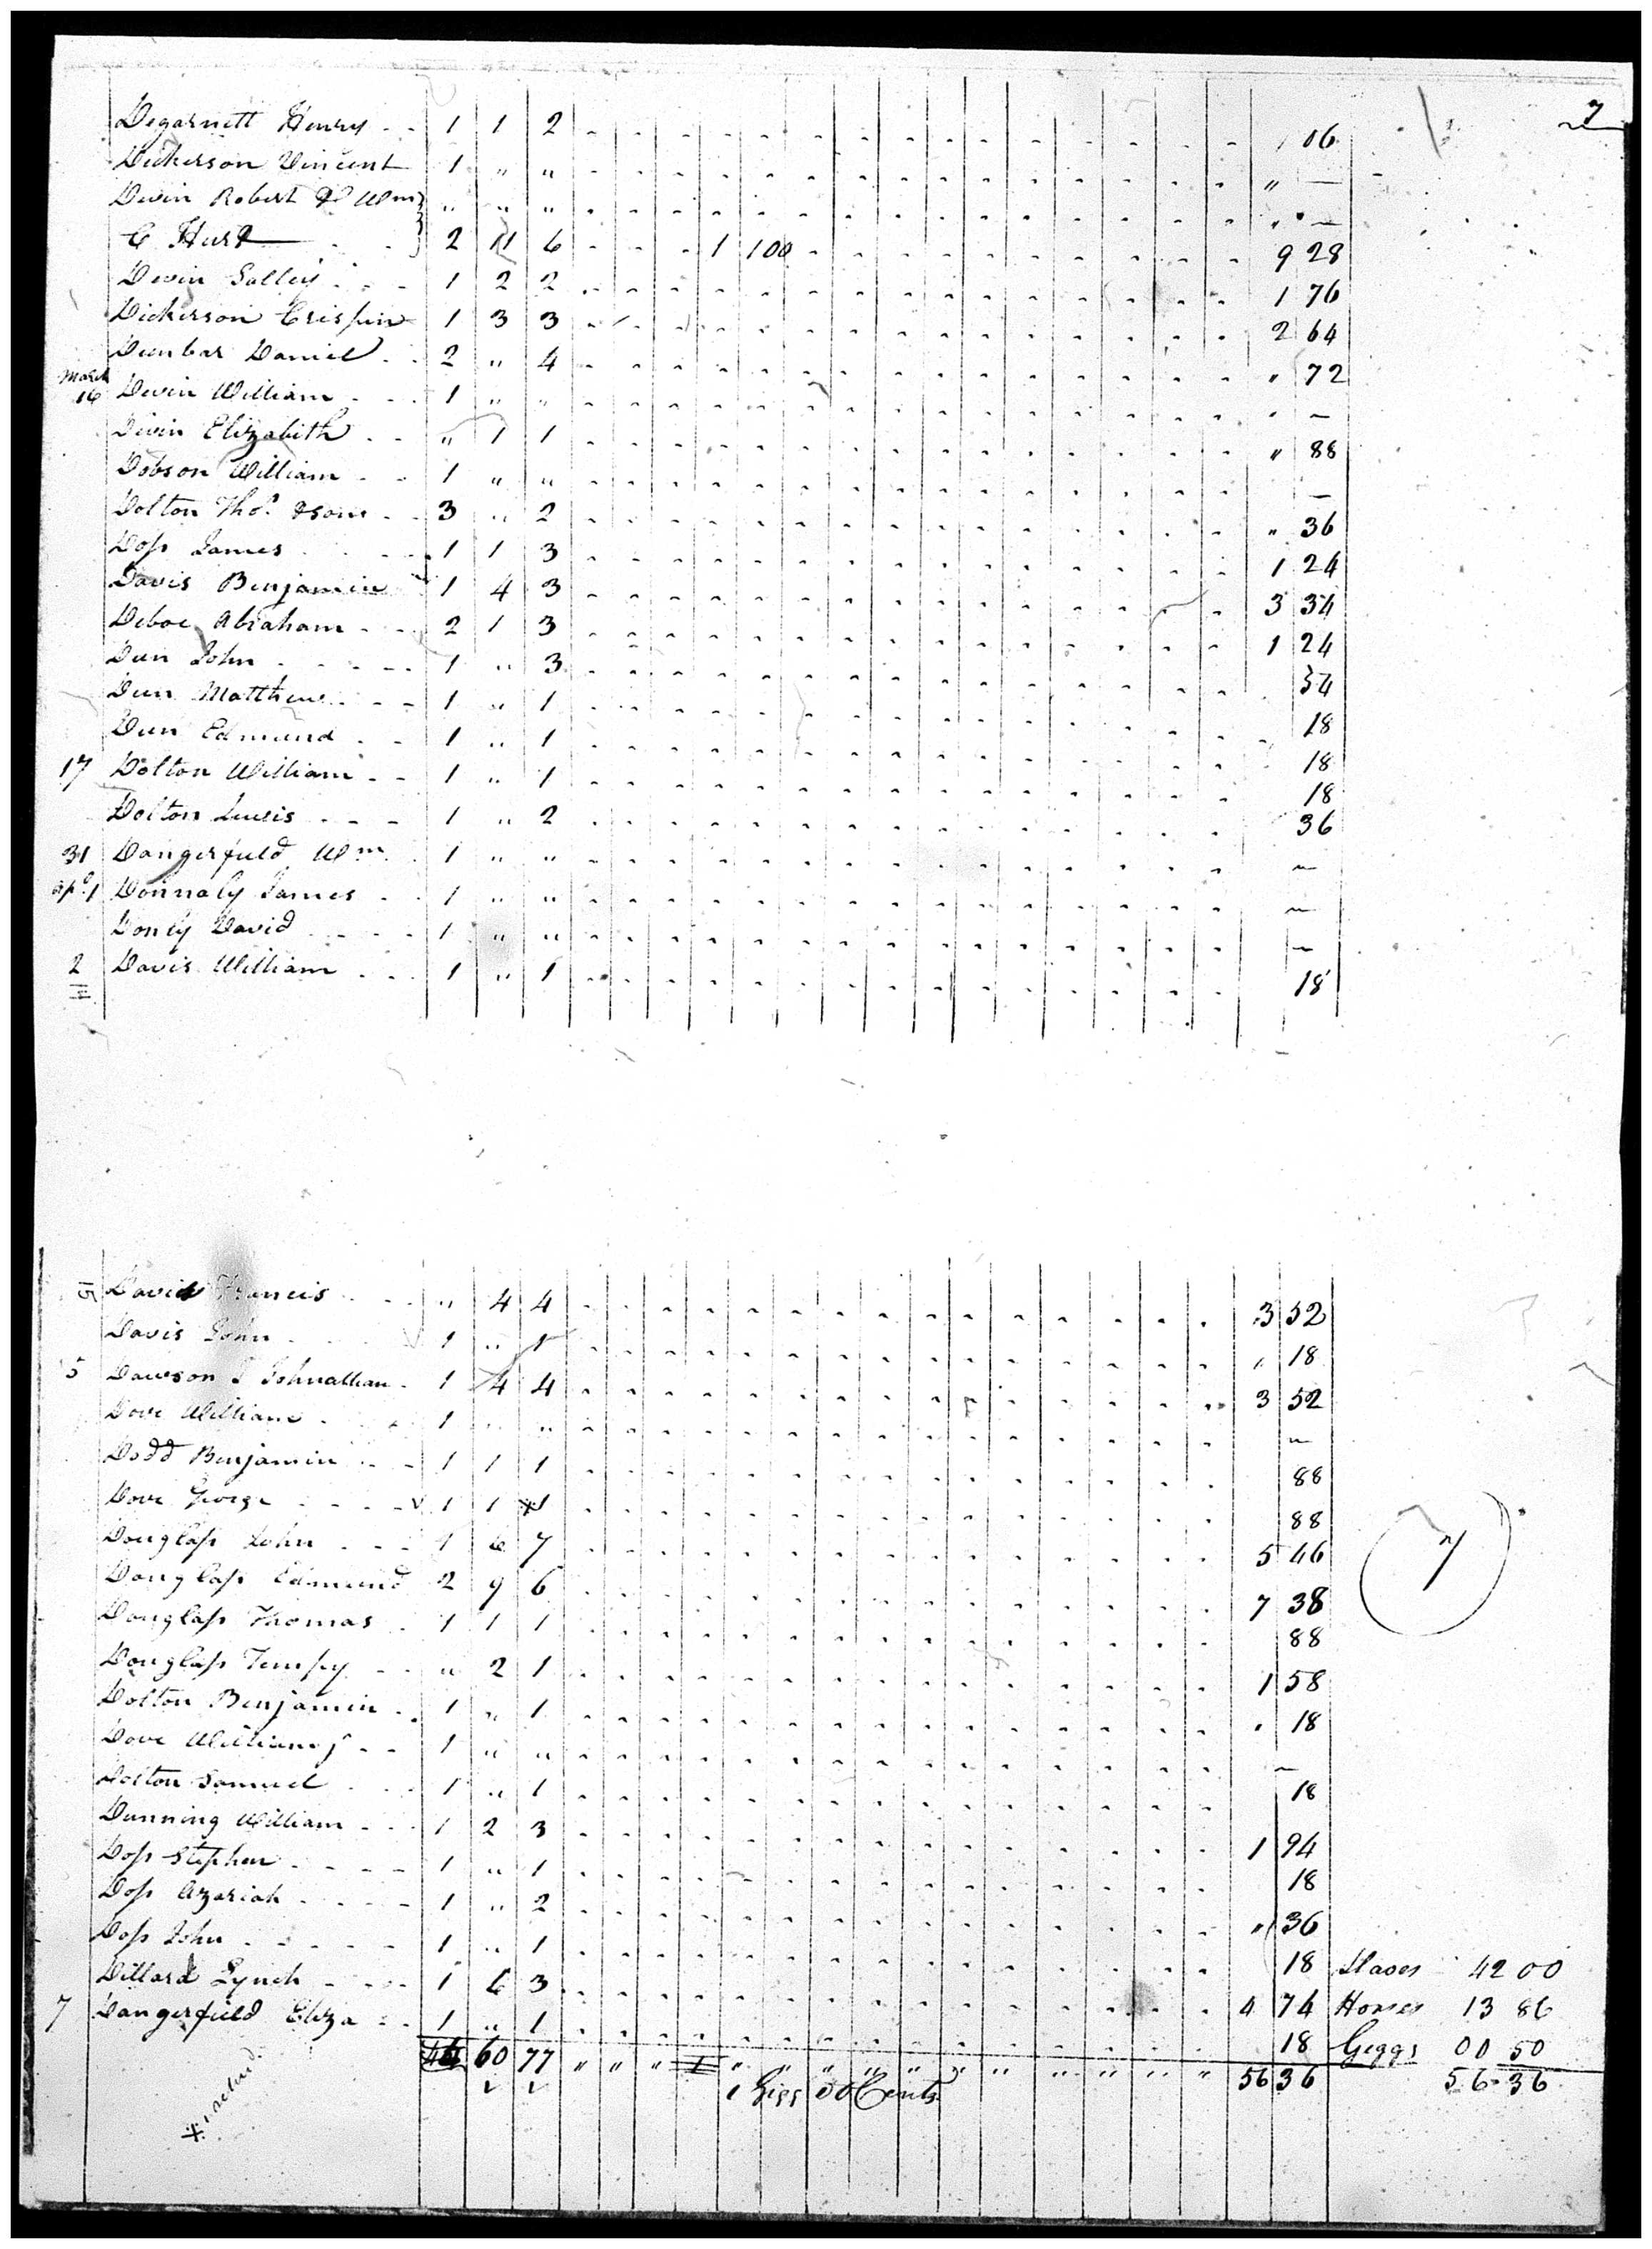 7
Degarnett Henry - - 1 1 2 1 06
Dickerson Vincent 1 " " " —
Devin Robert & Wm " " " " —
C Hurt 2 11 6 1 100 9 28
Devin Salley - - - 1 2 2 1 76
Dickerson Crispin 1 3 3 2 64
Dunbar Daniel - - 2 " 4 " 72
March 16 Devin William - - - 1 " " —
Devin Elizabeth - - " 1 1 " 88
Dobson William - - 1 " " —
Dolton Thos. & son - - 3 " 2 " 36
Doss James - - - 1 1 3 1 24
Davis Benjamin 1 4 3 3 34
Deboe Abraham - - 2 1 3 1 24
Dun John - - - - - 1 " 3 54
Dun Matthew - - - 1 " 1 18
Dun Edmund - - 1 " 1 18
17 Dolton William - - 1 " 1 18
Dolton Lewis - - - 1 " 2 36
31 Dangerfield Wm 1 " " —
Apl. 1 Donnaly James - - 1 " " —
Donly David - - - - 1 " " —
2 Davis William - - - 1 " 1 18
15 David Francis - - - " 4 4 3 52
Davis John 1 " 1 18
5 Dawson Johnathan - 1 4 4 3 52
Dove William - - 1 " " —
Dodd Benjamin - - 1 1 1 88
Dove George - - - - 1 1 * 1 88
Douglass John - - - 1 6 7 5 46
Douglass Edmund 2 9 6 7 38
Douglass Thomas - 1 1 1 88
Douglass Tempy - - " 2 1 1 58
Dolton Benjamin - 1 " 1 18
Dove William - - 1 " " —
Dolton Samuel - - 1 " 1 18
Dunning William - - - 1 2 3 1 94
Doss Stephen - - - - 1 " 1 18
Doss Azariah - - - - 1 " 2 " 36
Doss John - - - - - 1 " 1 18 Slaves 42 00
Dillard Lynch - - - - 1 6 3 4 74 Horses 13 86
7 Dangerfield Eliza - - 1 " 1 18 Giggs 00 50
60 77 " " " 1 " " " " " " " " " " " 56 36 56 36
1 Gigg 50 Cents